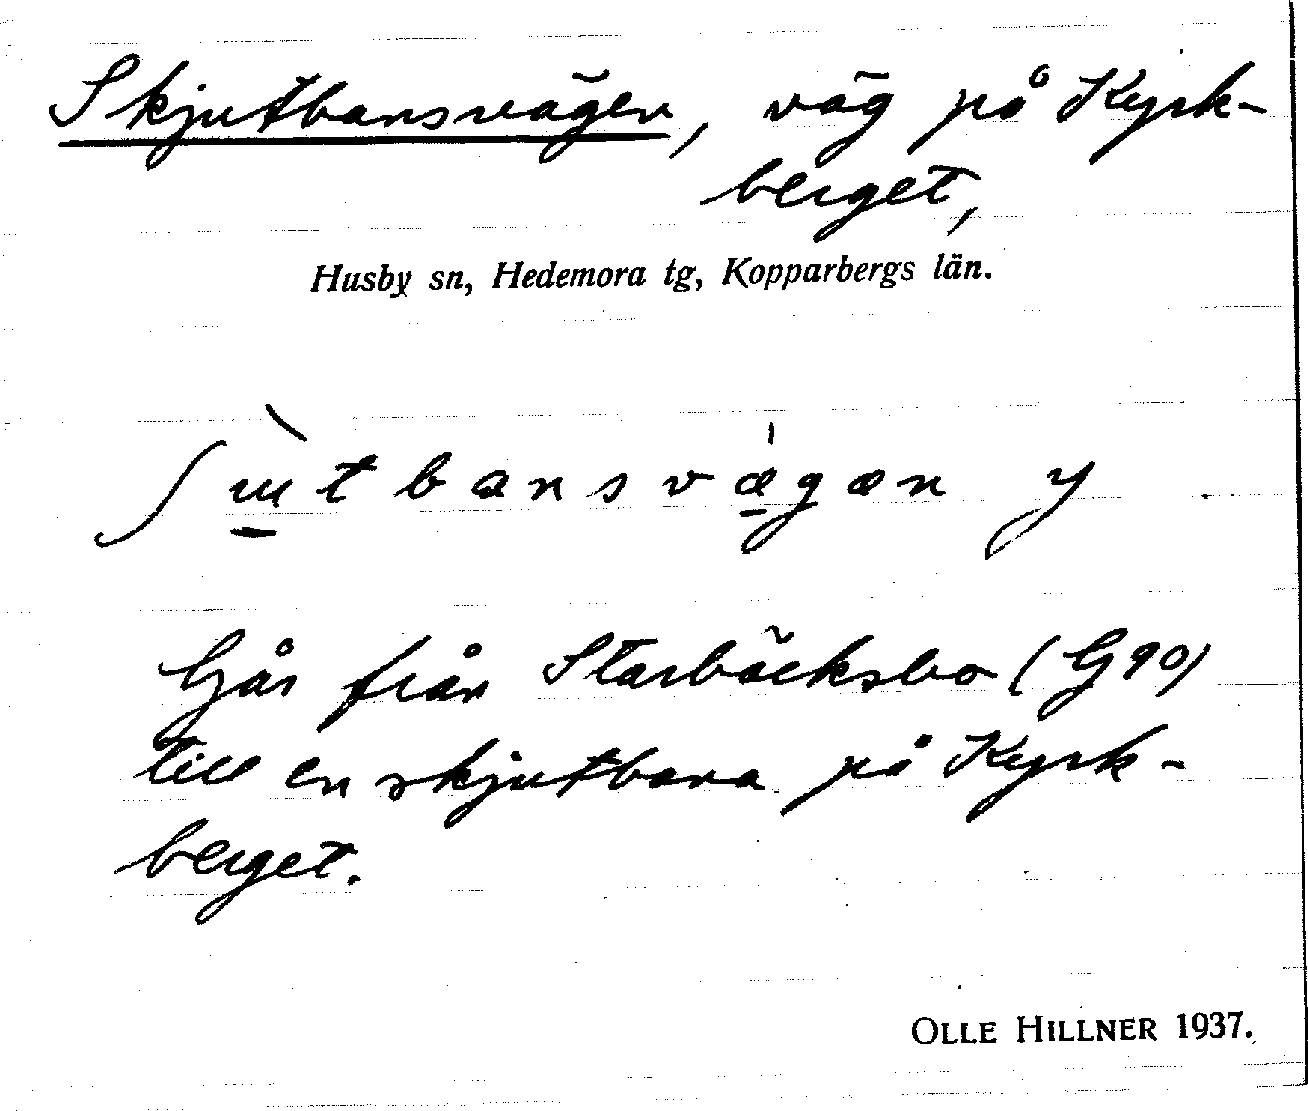 Skjutbansvägen, väg på Kyrk-
berget,
Husby sn, Hedemora tg, Kopparbergs län.
Går från Starbäcksbo (G90)
till en skjutbana på Kyrk-
berget.
OLLE HILLNER 1937.